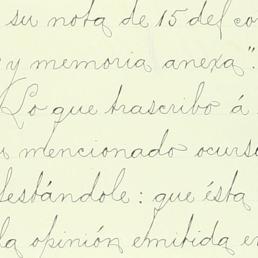 su nota de 15 del co
y memoria anexa".
Lo que trascribo á
mencionado ocurs
festándole: que ésta
la opinión emitida en